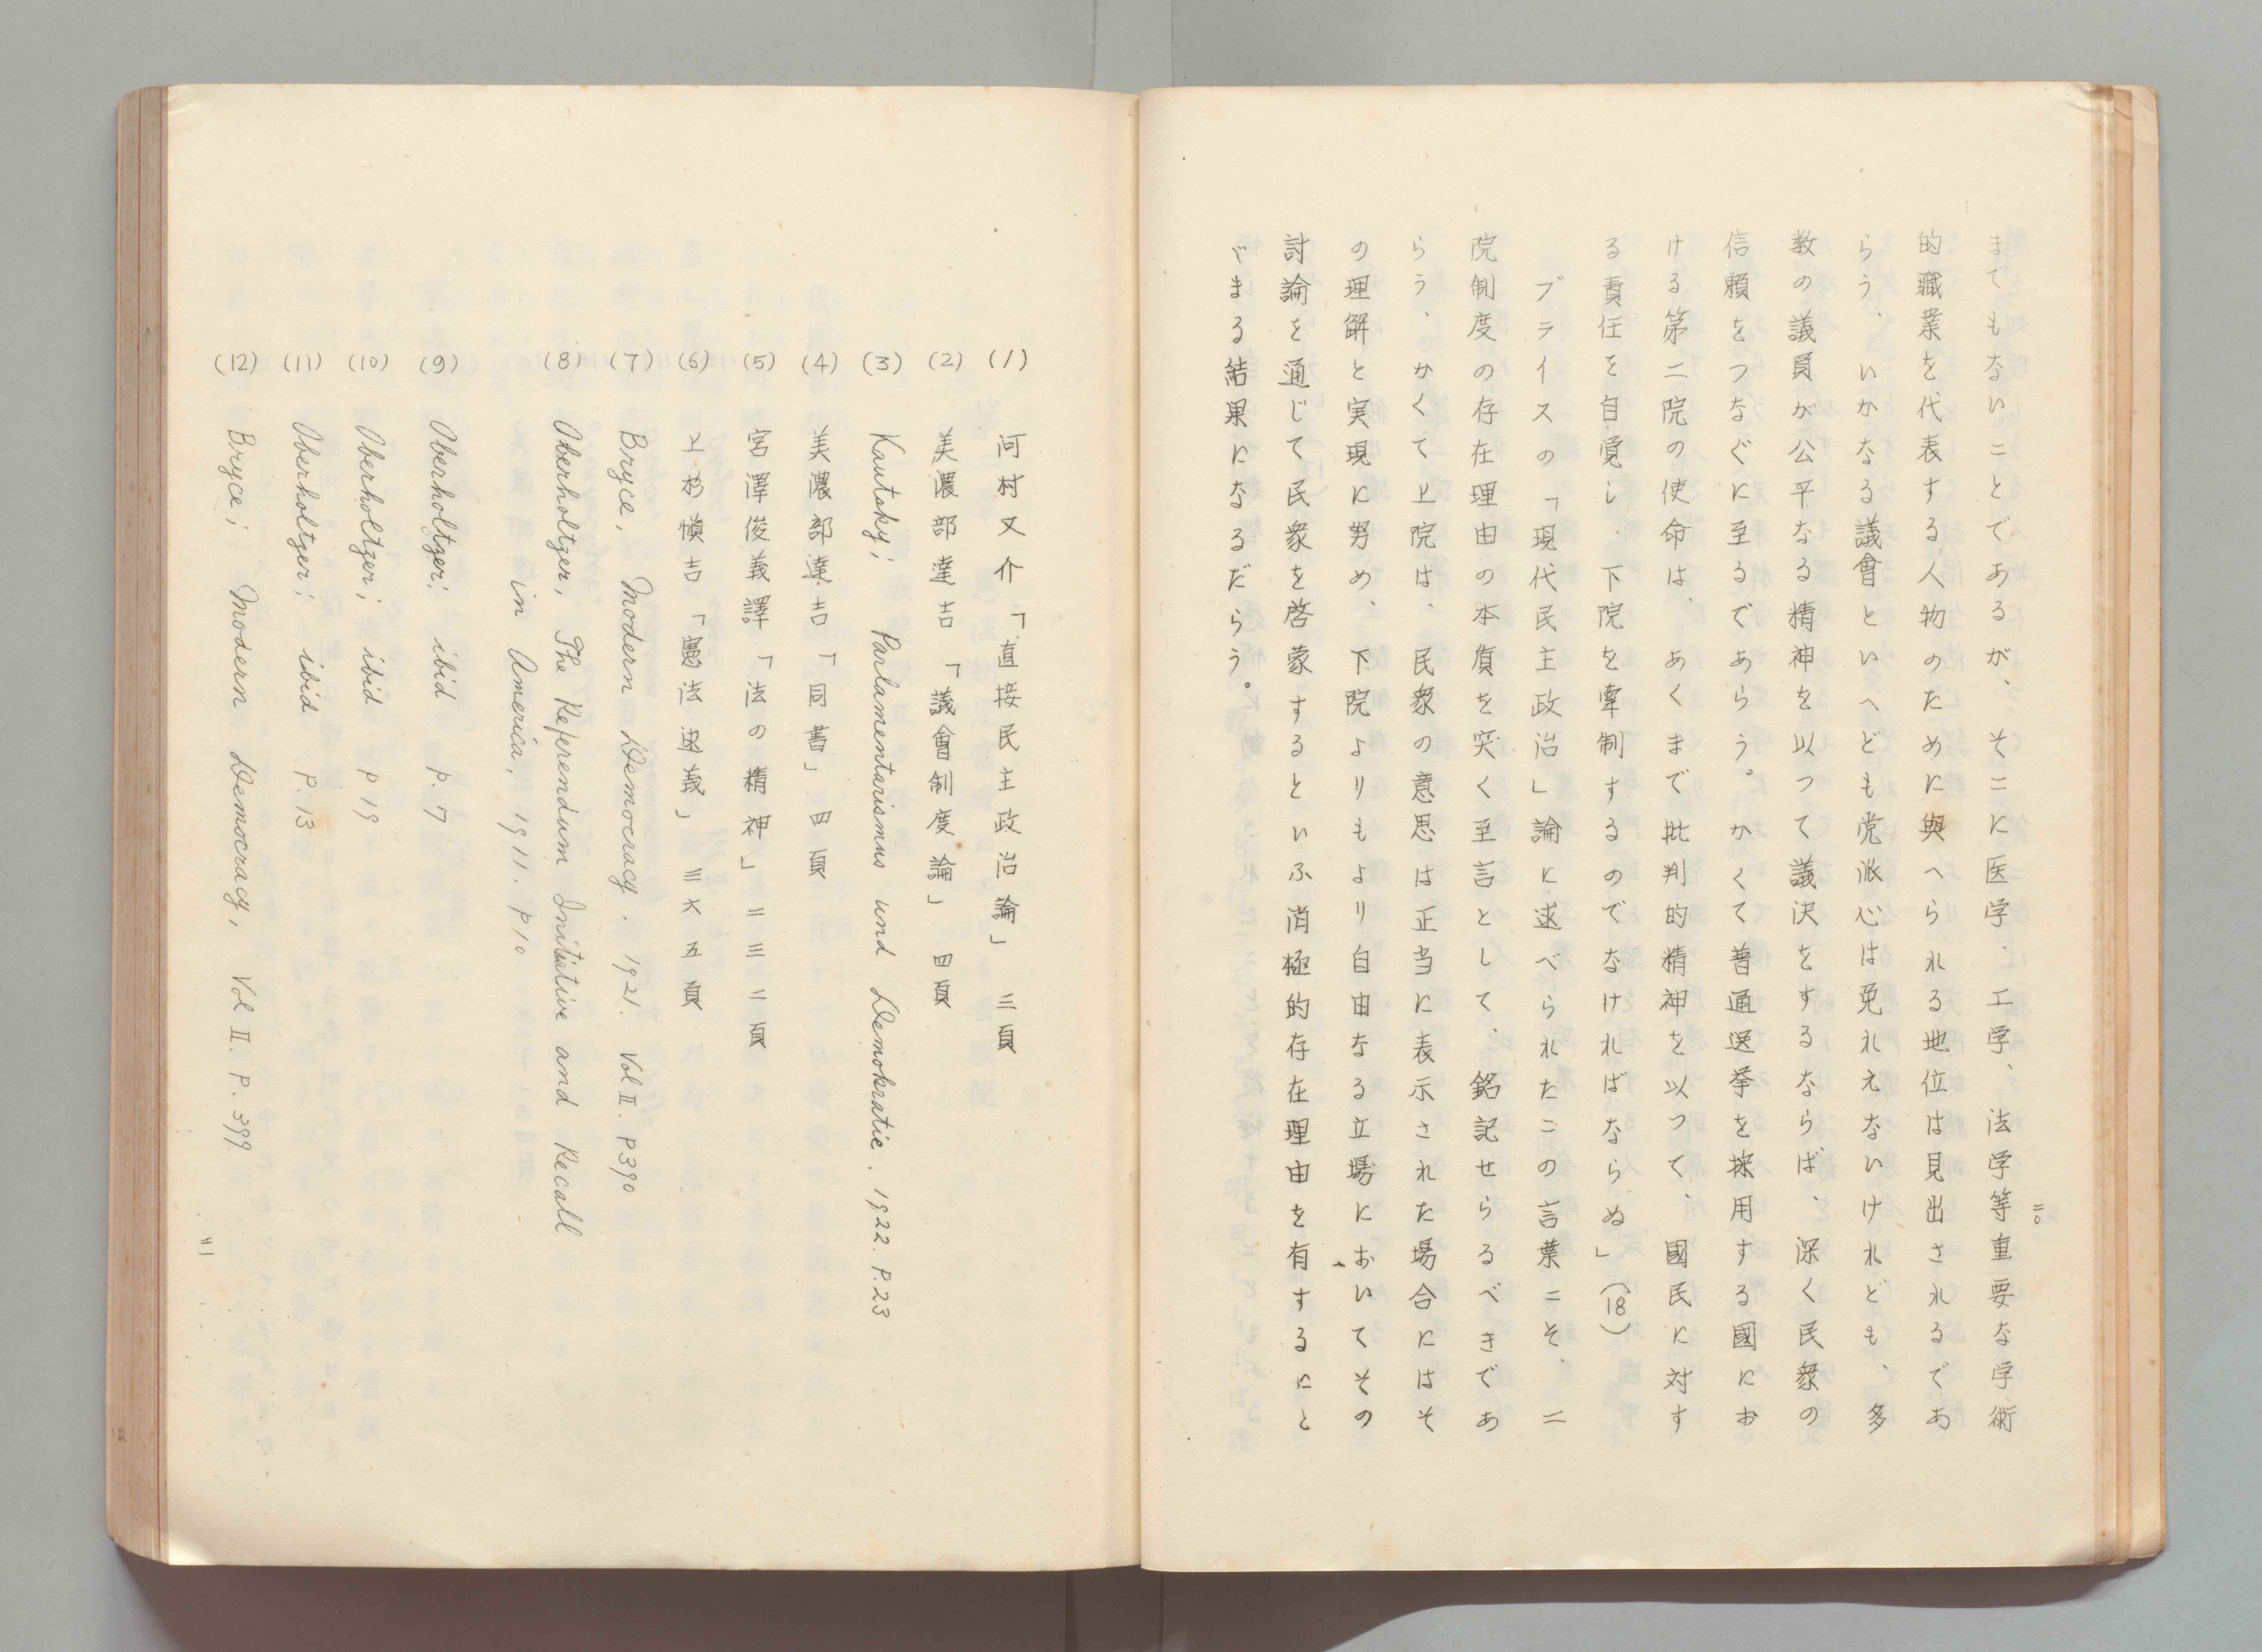 までもないことであるが、そこに医学、工学、法学等重要な学術
的職業を代表する人物のために與へられる地位は見出されるであ
らう、いかなる議會といへども党派心は免れえないけれども、多
数の議員が公平なる精神を以つて議決をするならば、深く民衆の
信頼をつなぐに至るであらう。かくて普通选挙を採用する國にお
ける第二院の使命は、あくまで批判的精神を以つて、國民に対す
る責任を自覚し、下院を牽制するのでなければならぬ」(18)
ブライスの「現代民主政治」論に述べられたこの言葉こそ、二
院制度の存在理由の本質を突く至言として、銘記せらるべきであ
らう、かくて上院は、民衆の意思は正当に表示された場合にはそ
の理解と実現に努め、下院よりもより自由なる立場においてその
討論を通じて民衆を啓蒙するといふ消極的存在理由を有するにと
ゞまる結果になるだらう。
二〇
(1) 河村又介「直接民主政治論」 三頁
(2) 美濃部達吉「議會制度論」 四頁
(3) Kautsky; Parlamentarismus und Demokratie. 1922. P.23
(4) 美濃部達吉「同書」四頁
(5) 宮澤俊義譯「法の精神」二三二頁
(6) 上杉愼吉「憲法述義」 三六五頁
(7) Bryce, Modern Democracy. 1921. Vol II. P390
(8) Oberholtzer, The Referendum Initiative and Recall
in America, 1911. P10
(9) Oberholtzer; ibid P.7
(10) Oberholtzer; ibid P19
(11) Oberholtzer; ibid P.13
(12) Bryce; Modern Democracy, Vol II. P.399
二一